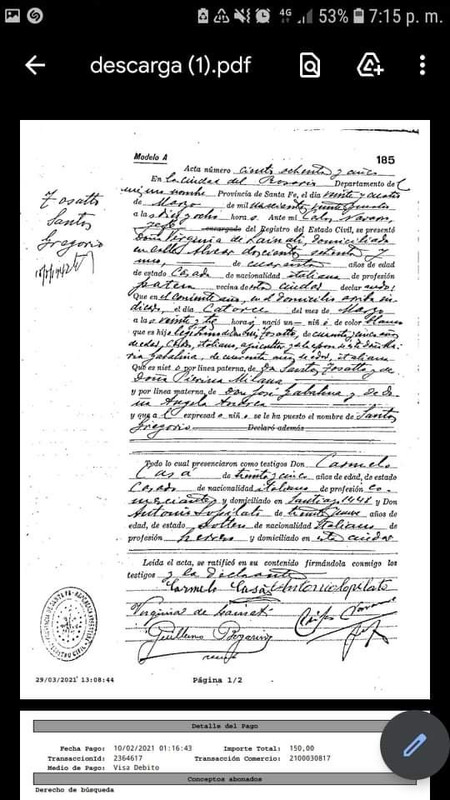 4G 53% 7:15 p. m.
descarga (1).pdf
Modelo A
185
Acta número ciento ochenta y cinco
En la ciudad del Rosario Departamento del
mismo nombre Provincia de Santa Fe, el día veinte y cuatro
de Marzo de mil novecientos
a las diez y ocho horas. Ante mi Carlos Navarro,
Jefe encargado del Registro del Estado Civil, se presentó
Doña Virginia de Sainati, domiciliada
en calle Alvear doscientos setenta y
de cuarenta años de edad
de estado Casada de nacionalidad italiana de profesión
partera vecina de esta ciudad declarando:
Que en el corriente año, en el domicilio arriba in-
dicado, el día Catorce del mes de Marzo
a las veinte y horas nació un niño de color blanco
que es hijo legítimo de Fosatto, de cuarenta y cinco años
de edad, casado, italiano,
ría Gabalina, de cuarenta años de edad, italiana
Que es nieto por línea paterna, de Don Santos Fosatto y de
Doña Milana
y por línea materna, de Don José Gabalina y de Do-
ña Angela Andrea
y que al expresado niño se le ha puesto el nombre de Santos
Gregorio Declaró además
Fosatto
Santos
Gregorio
Todo lo cual presenciaron como testigos Don Carmelo
Casá de treinta y cinco años de edad, de estado
Casado de nacionalidad italiano de profesión co-
merciante y domiciliado en Santiago 1441 y Don
Antonio Lopilato de treinta y nueve años de
edad, de estado soltero de nacionalidad Italiano de
profesión herrero y domiciliado en esta ciudad
Leída el acta, se ratificó en su contenido firmándola conmigo los
testigos y la declarante
Carmelo Casá Antonio Lopilato
Virginia de Sainati
Guillermo
29/03/2021 13:08:44
Página 1/2
Detalle del Pago
Fecha Pago: 10/02/2021 01:16:43 Importe Total: 150,00
TransaccionId: 2364617 Transacción Comercio: 2100030817
Medio de Pago: Visa Debito
Conceptos abonados
Derecho de búsqueda